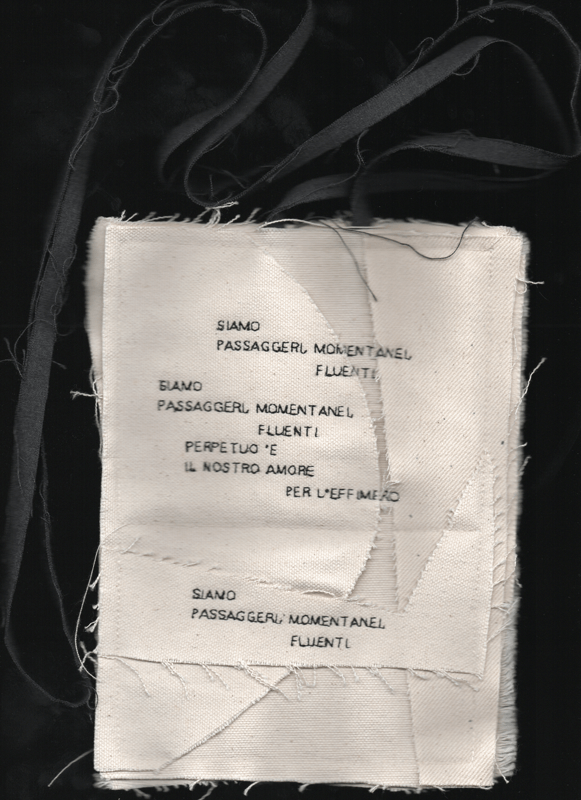 SIAMO
PASSAGGERI, MOMENTANEI,
FLUENTI
SIAMO
PASSAGGERI, MOMENTANEI,
FLUENTI
PERPETUO 'E
IL NOSTRO AMORE
PER L'EFFIMERO
SIAMO
PASSAGGERI, MOMENTANEI,
FLUENTI